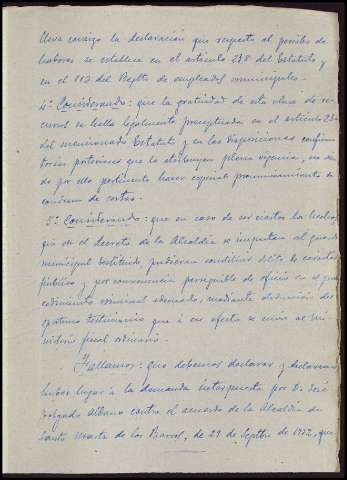 lleva consigo la declaración que respecto al percibo de
haberes se establece en el artículo 238 del Estatuto y
en el 112 del Regltº de empleados municipales.
4º Considerando: que la gratuidad de esta clase de re-
cursos se halla legalmente preceptuada en el artículo
del mencionado Estatuto y en las disposiciones confirma-
torias posteriores que le atribuyen plena vigencia, no sien-
do por ello pertinente hacer especial pronunciamiento de
condena de costas.
5º Considerando: que en caso de ser ciertos los hechos
que en el decreto de la Alcaldía se imputan al guarda
municipal destituido pudieran constituir delito de carácter
público y por consecuencia perseguible de oficio en el pro-
cedimiento criminal adecuado, mediante deducción del
oportuno testimonio que a ese efecto se envíe al Mi-
nisterio fiscal ordinario.
Fallamos: Que debemos declarar y declaramos
haber lugar a la demanda interpuesta por D. José
Delgado Albano contra el acuerdo de la Alcaldía de
Santa Marta de los Barros, de 29 de Septbre de 1932, que